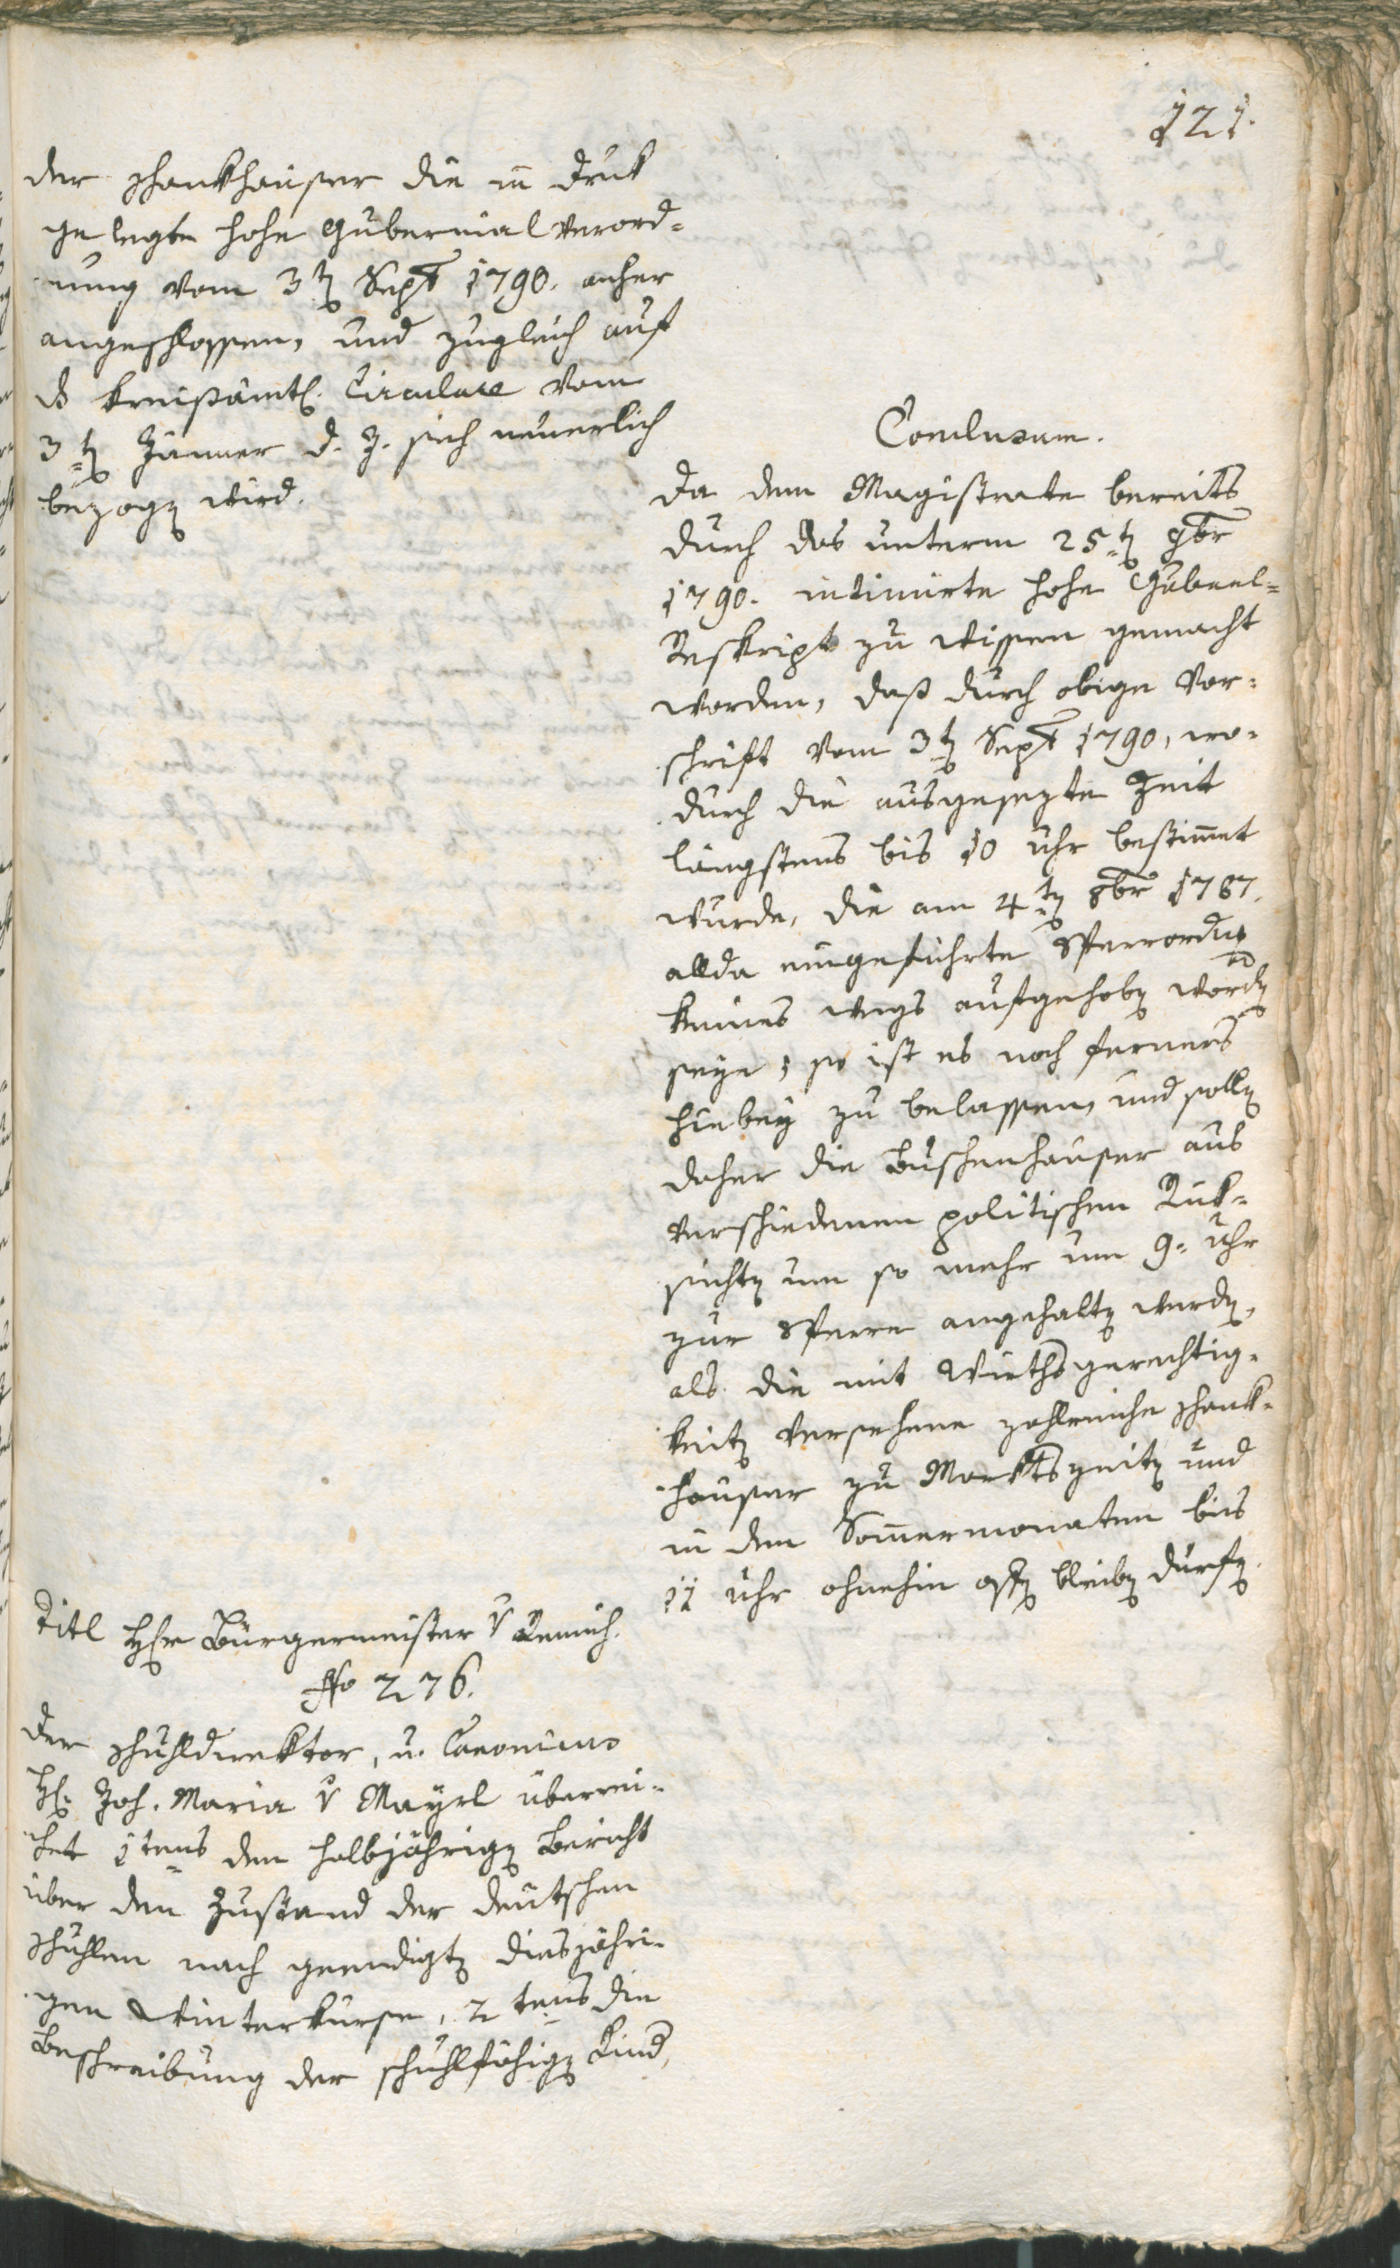 121.
der Schankhäuser die in Druk
gelegte hohe Gubernial Verord=
nung vom 3t(en) Sept 1790. anher
angeschlossen, und zugleich auf
ds kreißämtl. Circulare vom
3t(en) Jänner d. J. sich neuerlich
bezog(en) wird.
Conclusum.
Da dem Magistrate bereits
durch das unterm 25t(en) 9br
1790. intimirte hohe Guberl=
Reskript zu wissen gemacht
worden, daß durch obige Vor=
schrift vom 3t(en) Sept 1790, wo=
durch die ausgesezte Zeit
längstens bis 10 Uhr bestimmt
wurde, die am 4t(en) 8br 1787.
allda eingeführte Sperrordng
keines wegs aufgehob(en) word(en)
seye; so ist es noch ferners
hiebey zu belassen, und soll(en)
daher die Buschenhäuser aus
verschiedenen politischen Rük=
sicht(en) um so mehr um 9. Uhr
zur Sperre angehalt(en) werd(en),
als die mit Wirthsgerechtig=
keit(en) versehene zahlreiche Schank=
häuser zu Marktszeit(en) und
in den Sommermonaten bis
11 Uhr ohnehin off(en) bleib(en) dürf(en).
Titl Hr Bürgermeister v Remich.
Nro 276.
Der Schuhldirektor, u. Canonicus
H. Joh. Maria v Mayrl überrei=
chet 1tens den halbjährig(en) Bericht
über den Zustand der deutschen
Schuhlen nach geendigt(en) diesjähri=
gen Winterkurse, 2tens die
Beschreibung der schuhlfähig(en) Kind,